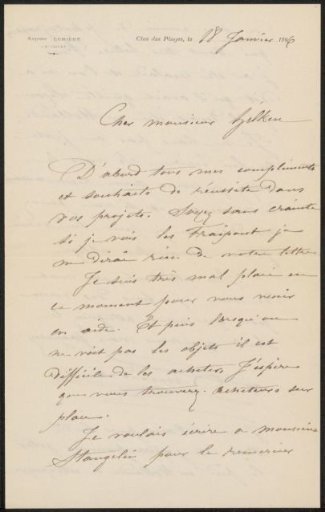 Clos des Pinyes, le 18 Janvier 1906
Cher monsieur Gilkin
D'abord tous mes compliments
et souhaits de réussite dans
vos projets. Soyez sans crainte
si je vois les je
ne dirai rien de votre lettre
Je suis très mal placé en
ce moment pour vous venir
en aide. Et puis lorsqu'on
ne voit pas les objets il est
difficile de les acheter. J'espère
que vous trouverez acheteurs sur
place.
Je voulais écrire a monsieur
pour le remercier